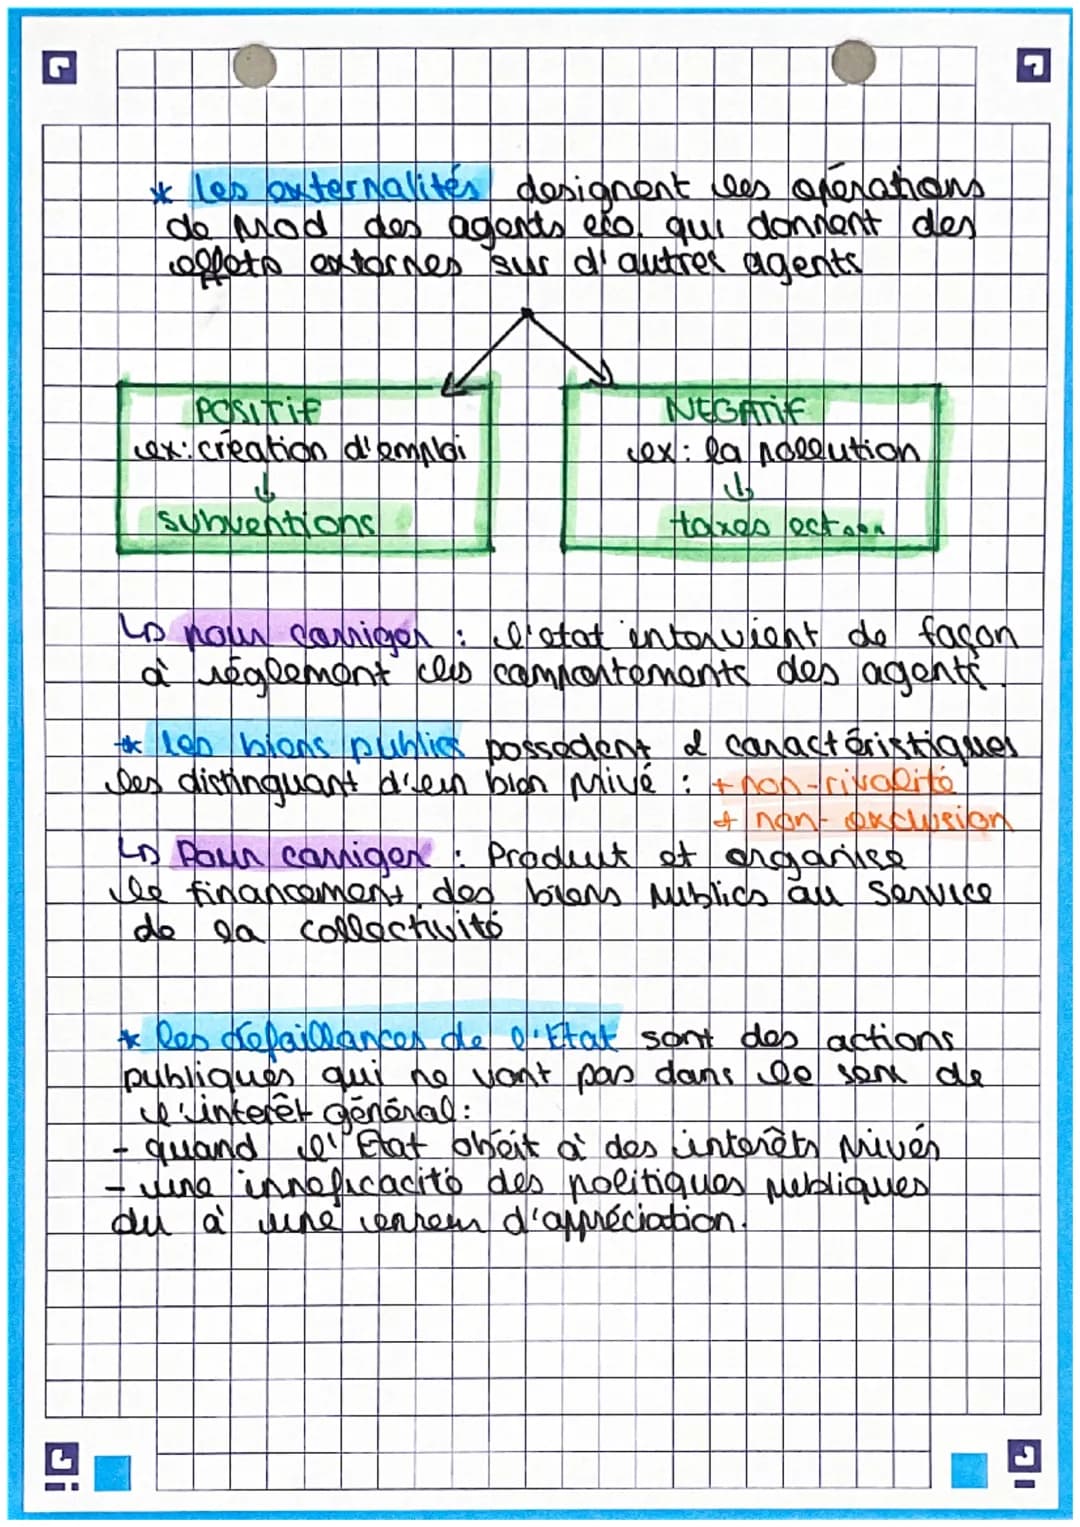 * les externalités designent les opérations
de prod des agents éco. qui donnent des
effets externes sur d'autres agents
POSITIF
ex: création d'emploi
↓
subventions
NEGATIF
ex: la pollution
↓
taxes ect...
↳ pour corriger : l'état intervient de façon
à réglement les comportements des agents.
* les biens publics possedent 2 caractéristiques
les distinguant d'un bien privé : + non-rivalité
+ non-exclusion
↳ Pour corriger : Produit et organise
le financement des biens publics au service
de la collectivité
* les défaillances de l'Etat sont des actions
publiques qui ne vont pas dans le sens de
l'interêt général:
- quand l'Etat obéit à des interêts privés
- une inneficacité des politiques publiques
du à une erreur d'appréciation.